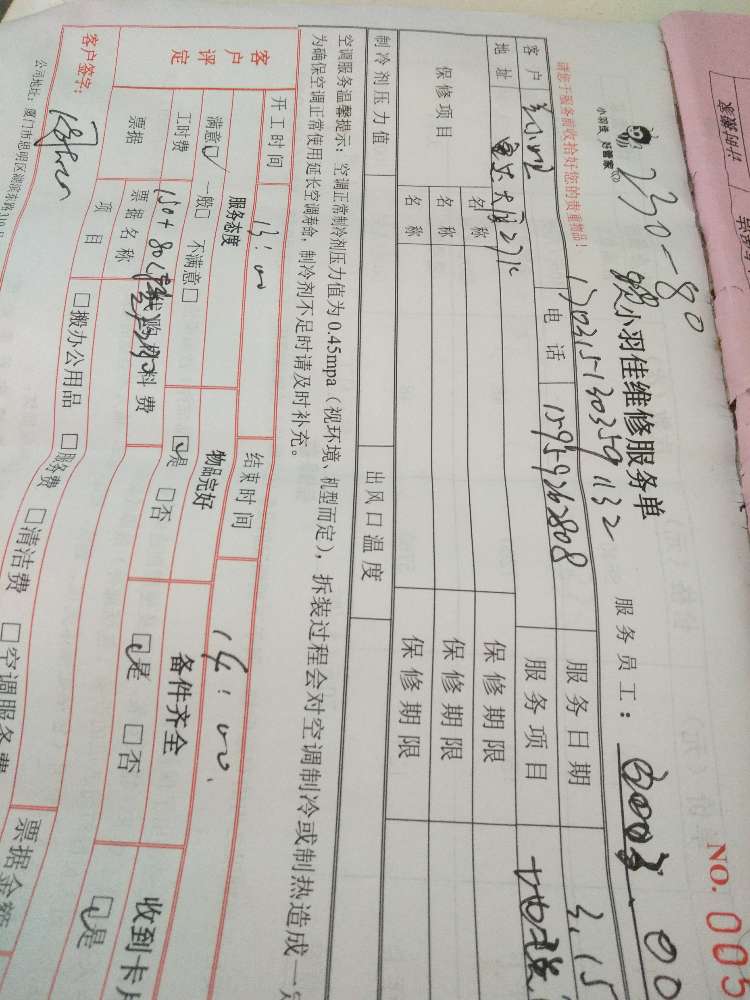 230-80
小羽佳 好管家
小羽佳维修服务单
服务员工：
NO. 005
170315130359132
请您于服务前收拾好您的贵重物品！
客户
电话 13959262808
服务日期 3.15
地址
服务项目
保修项目
名称 保修期限
名称 保修期限
名称 保修期限
制冷剂压力值 出风口温度
空调服务温馨提示：空调正常制冷剂压力值为0.45mpa（视环境、机型而定），拆装过程会对空调制冷或制热造成一定
为确保空调正常使用延长空调寿命，制冷剂不足时请及时补充。
开工时间 13:00 结束时间 14:00
客户评定
服务态度 物品完好 备件齐全 收到卡片
满意☑ 一般□ 不满意□ ☑是 □否 ☑是 □否 ☑是
工时费 150+80 代购材料费
票据 票据名称 票据金额
项目 □搬办公用品 □服务费 □清洁费 □空调服务费
客户签字：
公司地址：厦门市思明区湖滨东路319号